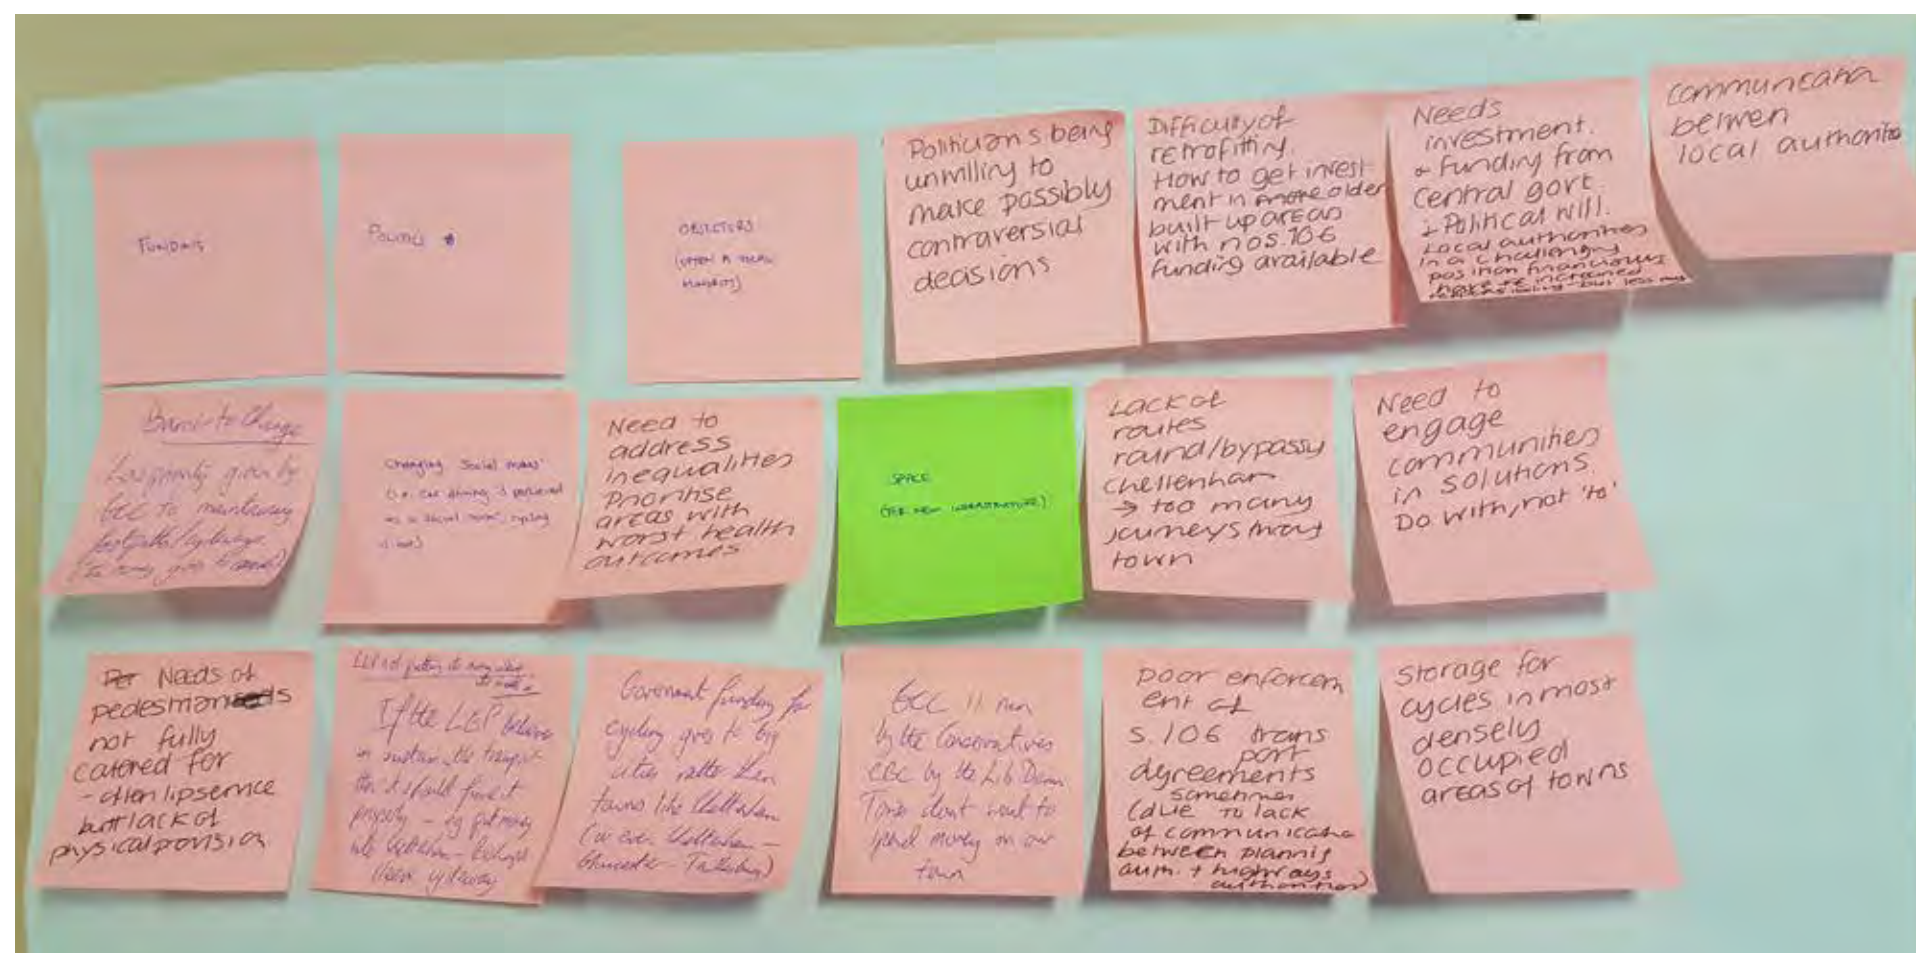 FUNDING
POLITICS
OBJECTORS
(OFTEN A VOCAL
MINORITY)
Politicians being
unwilling to
make possibly
contraversial
decisions
Difficulty of
retrofitting.
How to get invest-
ment in more older
built up areas
with no s.106
funding available
Needs
investment.
+ funding from
Central govt
+ Political will.
Local authorities
in a challenging
position financially
have increased
but less
Communication
between
local authorities
Barrier to Change
Low priority given by
GCC to maintaining
footpaths/cycleways
(The money goes to
Changing 'social norms'
(i.e. car driving is perceived
as a 'social norm', cycling
is not)
Need to
address
inequalities
Prioritise
areas with
worst health
outcomes
SPACE
(FOR NEW INFRASTRUCTURE)
Lack of
routes
round/bypassing
Cheltenham
→ too many
journeys thro'
town
Need to
engage
communities
in solutions.
Do with, not 'to'
Per Needs of
pedestrians
not fully
catered for
- often lipservice
but lack of
physical provision
LEP not putting its money where
its mouth is
If the LEP believes
in sustainable transport
then it should fund it
properly - eg put money
into Cheltenham - Bishops
Cleeve cycleway
Government funding for
cycling goes to big
cities rather than
towns like Cheltenham
(or even Cheltenham -
Gloucester - Tewkesbury)
GCC is run
by the Conservatives
CBC by the Lib Dems
Tories don't want to
spend money on our
town
Poor enforcem
ent of
s.106 trans
port
agreements
sometimes
(due to lack
of communication
between planning
auth. + highways
authorities)
Storage for
cycles in most
densely
occupied
areas of towns